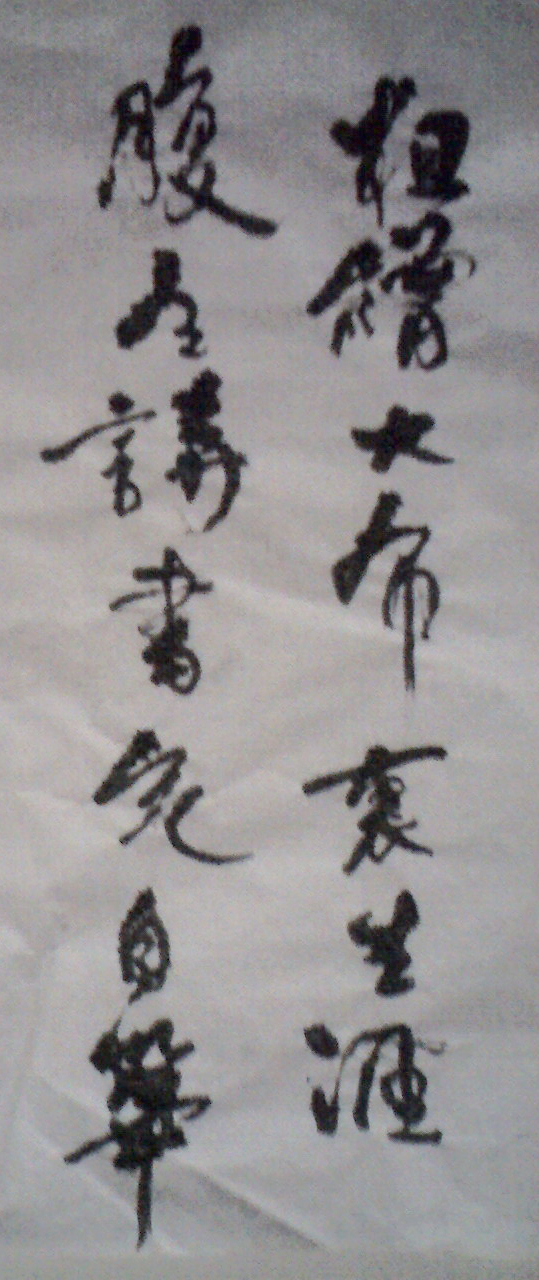 粗缯大布裹生涯
腹有諸書氣自華